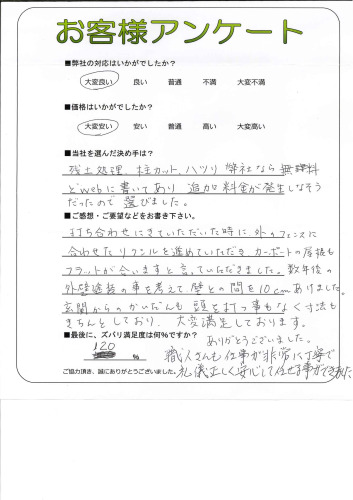 お客様アンケート
■弊社の対応はいかがでしたか?
大変良い 良い 普通 不満 大変不満
■価格はいかがですか?
大変安い 安い 普通 高い 大変高い
■当社を選んだ決め手は?
残土処理、柱カット、ハツリ 弊社なら無料
とwebに書いてあり 追加料金が発生しなそう
だったので 選びました。
■ご感想・ご要望などをお書き下さい。
打ち合わせにきていただいた時に、外のフェンスに
合わせた を進めていただき、カーポートの屋根も
フラットが合いますと言っていただきました。数年後の
外壁塗装の事を考えて 壁との間を10cmあけました。
玄関からのかいだんも 頭を打つ事もなく寸法も
きちんとしており、大変満足しております。
ありがとうございました。
■最後に、ズバリ満足度は何%ですか?
120 %
職人さんも仕事が非常に丁寧で
礼儀正しく安心して任せる事ができました
ご協力頂き、誠にありがとうございました。